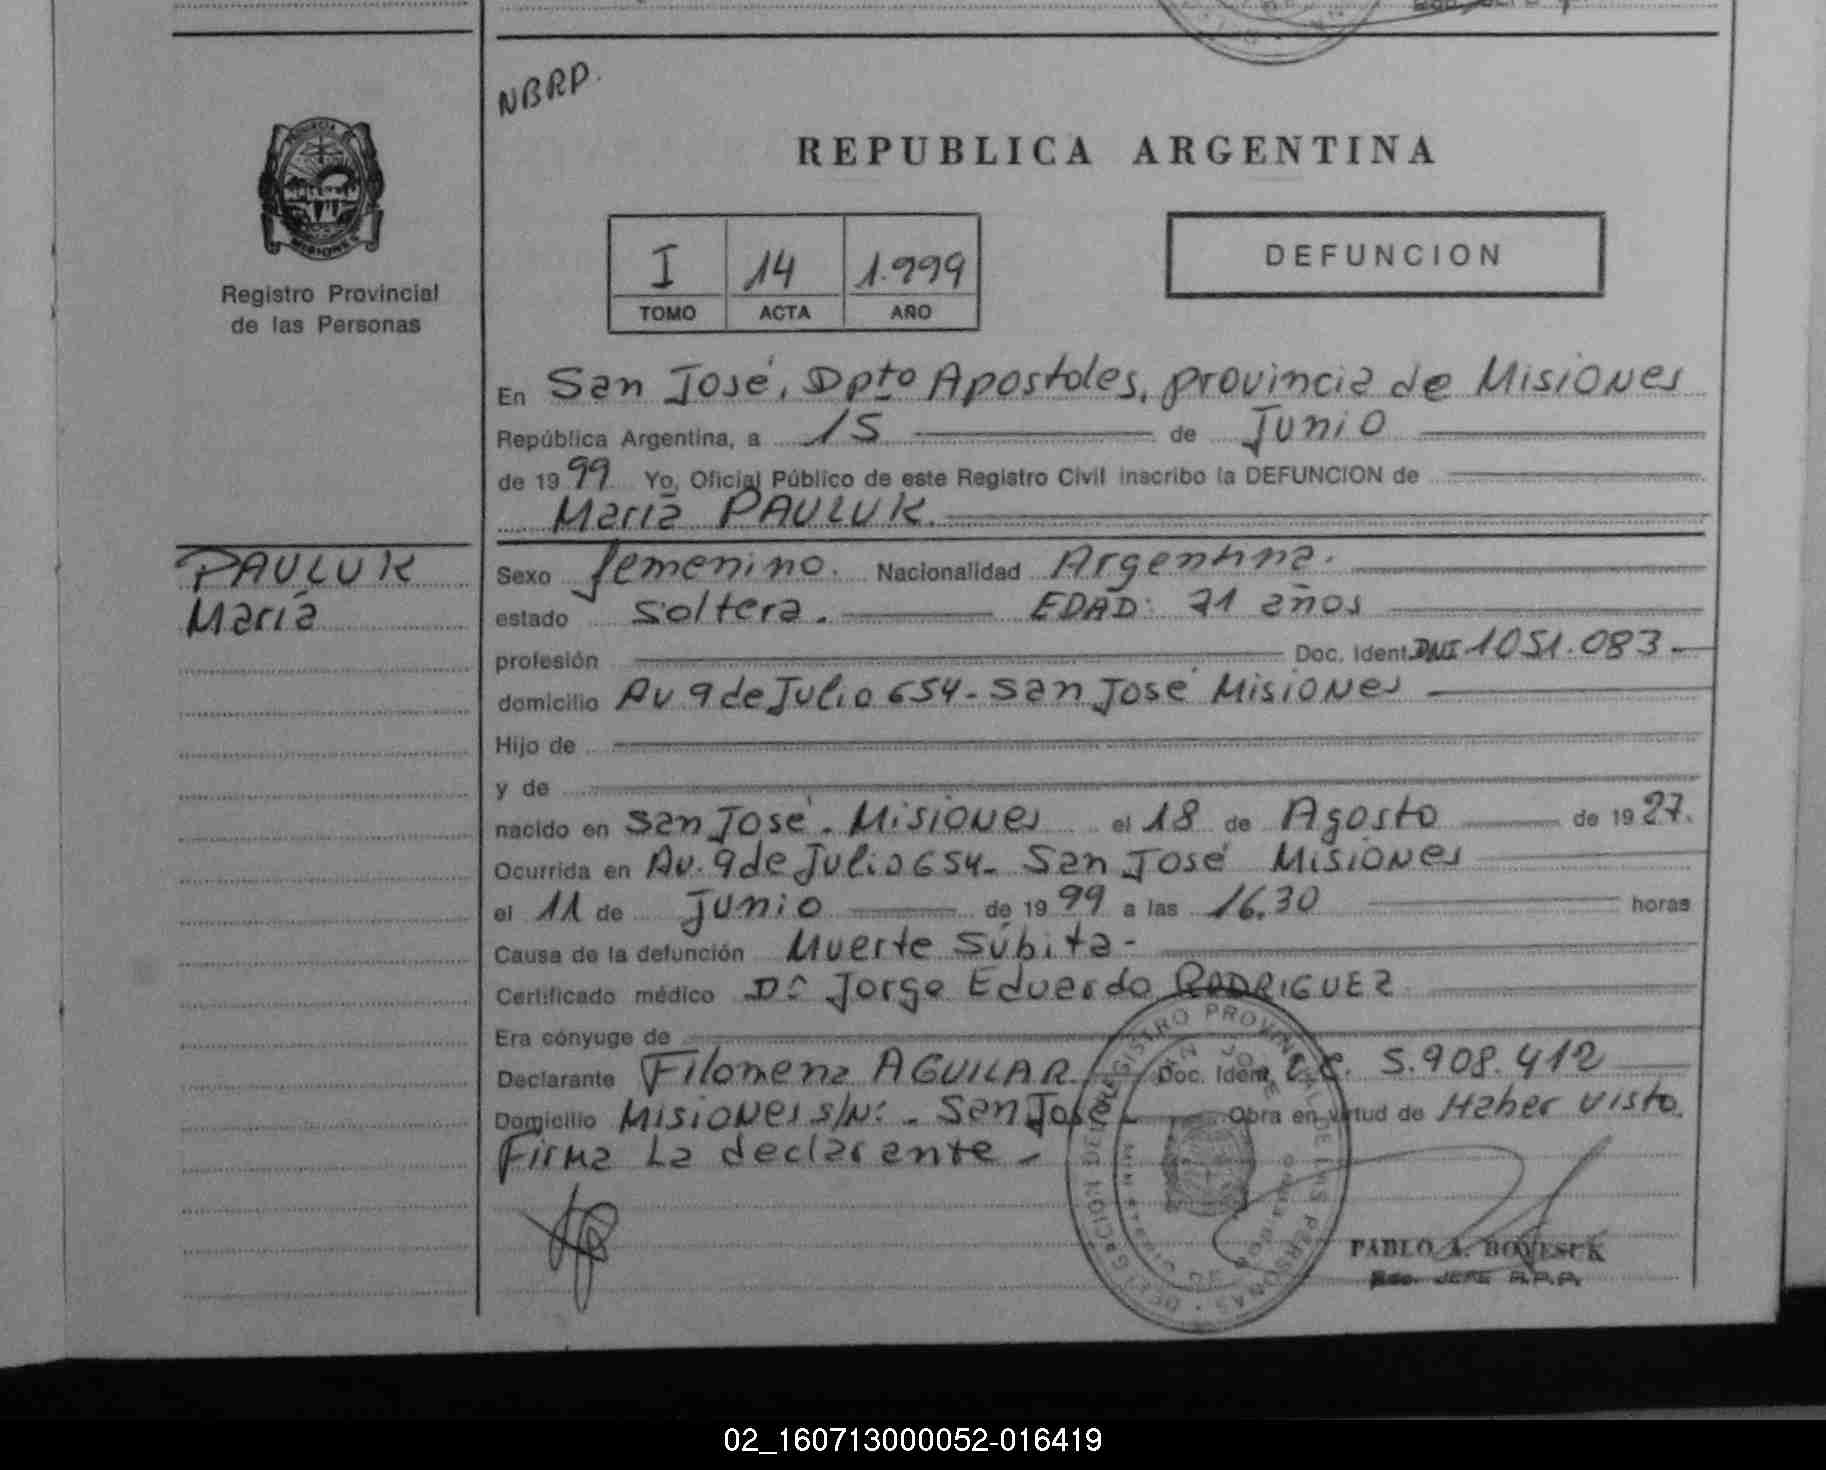 NBRP.
REPUBLICA ARGENTINA
PROVINCIA DE
MISIONES
Registro Provincial
de las Personas
I 14 1.999
TOMO ACTA AÑO
DEFUNCION
En San José, Dpto Apostoles, provincia de Misiones
República Argentina, a 15 de Junio
de 1999 Yo, Oficial Público de este Registro Civil inscribo la DEFUNCION de
María PAULUK.
PAULUK
María
Sexo femenino. Nacionalidad Argentina.
estado soltera. EDAD: 71 años
profesión Doc. Ident. DNI 1051.083.-
domicilio Av 9 de Julio 654 - San José Misiones
Hijo de
y de
nacido en San José. Misiones el 18 de Agosto de 1927.
Ocurrida en Av. 9 de Julio 654 - San José Misiones
el 11 de Junio de 1999 a las 16.30 horas
Causa de la defunción Muerte Súbita -
Certificado médico Dr Jorge Eduardo RODRIGUEZ
Era cónyuge de
Declarante Filomena AGUILAR Doc. Ident. L.C. 5.908.412
Domicilio Misiones s/Nº. - San José - Obra en virtud de Haber visto.
Firma La declarante -
DELEGACION DEL REGISTRO PROVINCIAL DE LAS PERSONAS
SAN JOSE
PABLO A. BOYESUK
Edo. JEFE R.P.P.
02_160713000052-016419